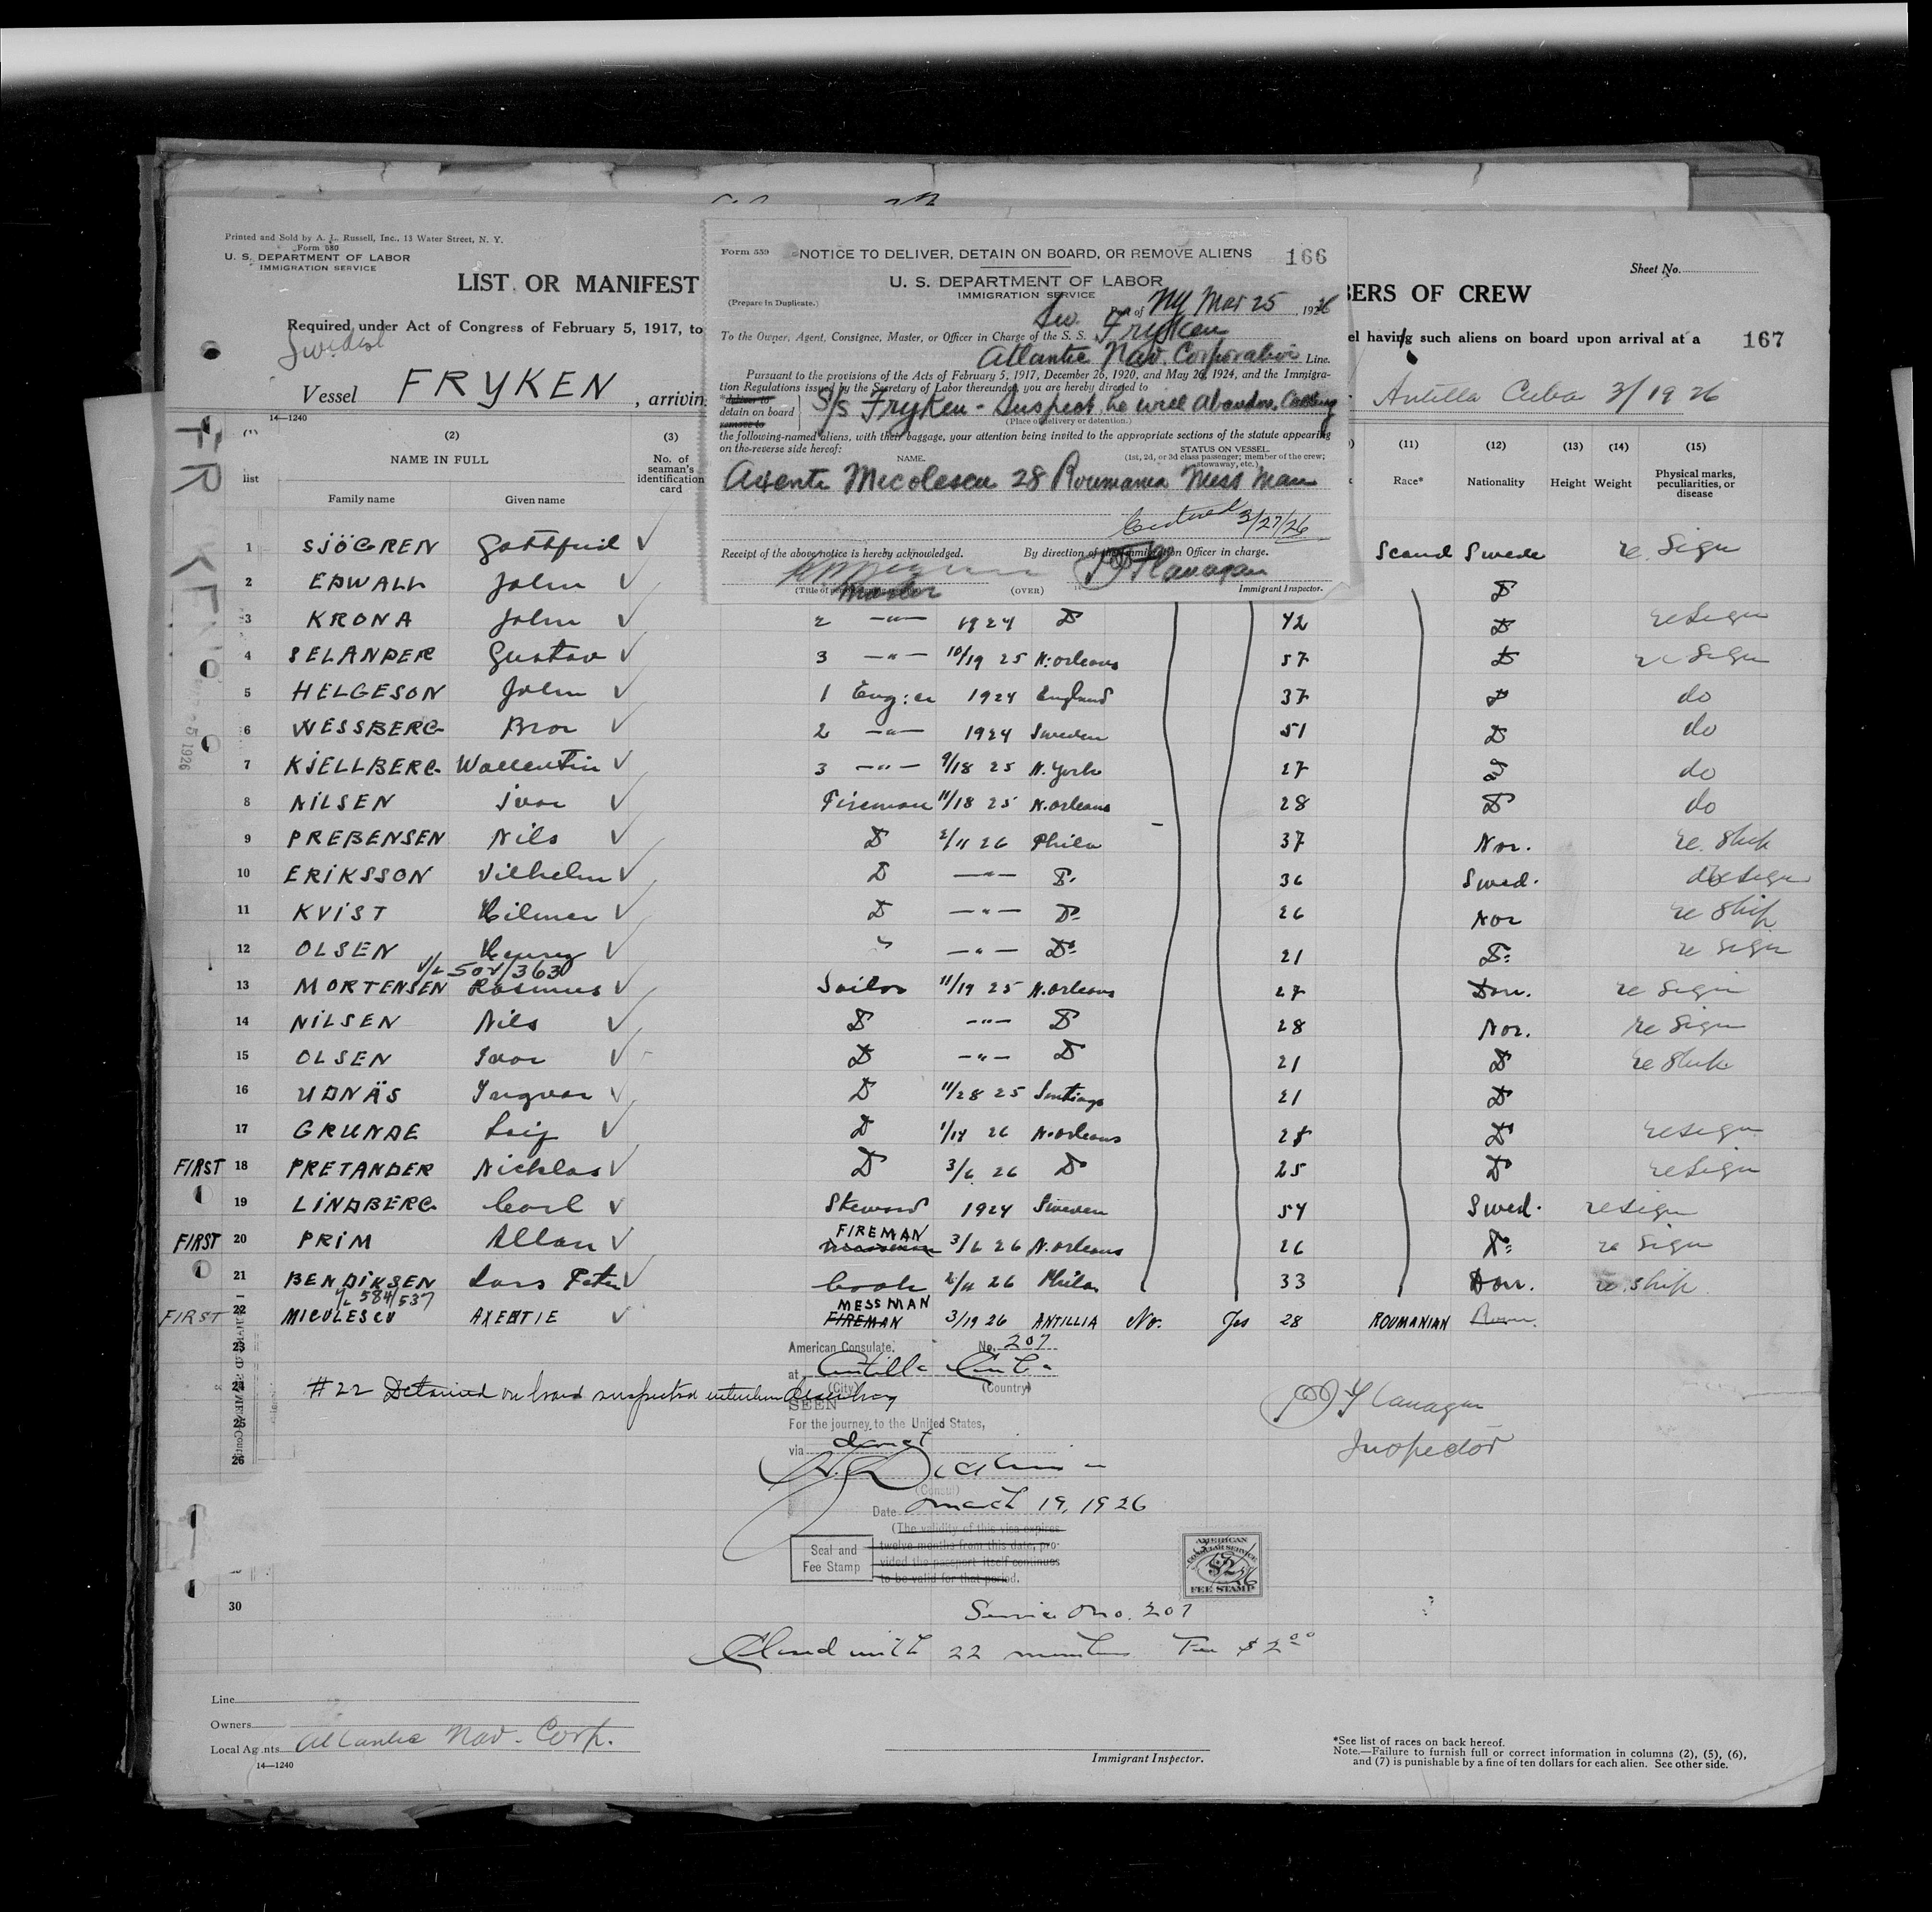 Printed and Sold by A. L. Russell, Inc., 13 Water Street, N. Y.
Form 680
U. S. DEPARTMENT OF LABOR
IMMIGRATION SERVICE
LIST OR MANIFEST
BERS OF CREW
Sheet No.
Required under Act of Congress of February 5, 1917, to
el having such aliens on board upon arrival at a
167
Swedish
Vessel FRYKEN, arrivin
Antilla Cuba 3/19 26
14—1240
Form 559
NOTICE TO DELIVER, DETAIN ON BOARD, OR REMOVE ALIENS
166
U. S. DEPARTMENT OF LABOR
IMMIGRATION SERVICE
(Prepare in Duplicate.)
Port of NY Mar 25, 1926
To the Owner, Agent, Consignee, Master, or Officer in Charge of the S. S. Sw. Fryken
Atlantic Nav. Corporation Line.
Pursuant to the provisions of the Acts of February 5, 1917, December 26, 1920, and May 26, 1924, and the Immigra-
tion Regulations issued by the Secretary of Labor thereunder, you are hereby directed to
*deliver to
detain on board
remove to
S/s Fryken - Suspect he will abandon Calling
(Place of delivery or detention.)
the following-named aliens, with their baggage, your attention being invited to the appropriate sections of the statute appearing
on the reverse side hereof:
NAME.
STATUS ON VESSEL
(1st, 2d, or 3d class passenger; member of the crew;
stowaway, etc.)
Axente Micolescu 28 Roumania Mess Man
3/27/26
Receipt of the above notice is hereby acknowledged.
By direction of the Immigration Officer in charge.
Master
Flanagan
(OVER)
Immigrant Inspector.
(2) (3) (11) (12) (13) (14) (15)
list
NAME IN FULL
Family name
Given name
No. of
seaman's
identification
card
Race*
Nationality
Height
Weight
Physical marks,
peculiarities, or
disease
1 SJÖGREN Gottfrid Scand Swede re Sign
2 EDWALL John D
3 KRONA John 2 —"— 1924 D 42 D re Sign
4 SELANDER Gustav 3 —"— 10/19 25 N:orleans 57 D re Sign
5 HELGESON John 1 Eng:er 1924 England 37 D do
6 WESSBERG Bror 2 —"— 1924 Sweden 51 D do
7 KJELLBERG Wallentin 3 —"— 9/18 25 N. York 27 do
8 NILSEN Ivar Fireman 11/18 25 N.orleans 28 D do
9 PREBENSEN Nils D 2/11 26 Phila 37 Nor. re Ship
10 ERIKSSON Vilhelm D —"— D. 36 Swed. re Sign
11 KVIST Hilmer D —"— D: 26 Nor re Ship
12 OLSEN Henry " —"— D: 21 D: re Sign
13 MORTENSEN Rasmus Sailor 11/19 25 N.orleans 27 Dan. re Sign
14 NILSEN Nils D —"— D 28 Nor. re Sign
15 OLSEN Ivar D —"— D 21 D re Ship
16 UDNÄS Yngvar D 11/28 25 Santiago 21 D
17 GRUNDE Leif D 1/14 26 N.orleans 28 D re Sign
FIRST 18 PRETANDER Nicklas D 3/6 26 D 25 D re Sign
19 LINDBERG Carl Steward 1924 Sweden 54 Swed. re Sign
FIRST 20 PRIM Allan FIREMAN 3/6 26 N.orleans 26 D: re Sign
21 BENDIKSEN Lars Peter Cook 2/11 26 Phila 33 Dan. re ship
584/537
MESSMAN
FIRST 22 MICULESCU AXENTIE FIREMAN 3/19 26 ANTILLIA No. Yes 28 ROUMANIAN Roum.
23
24
25
26
#22 Detained on board suspected intention deserting
American Consulate. No. 207
at Antilla Cuba
(City) (Country)
SEEN
For the journey to the United States,
via direct
(Consul)
Date March 19, 1926
(The validity of this visa expires
twelve months from this date, pro-
vided the passport itself continues
to be valid for that period.
Seal and
Fee Stamp
AMERICAN
CONSULAR SERVICE
$2
FEE STAMP
Flanagan
Inspector
30
Service No. 207
Closed with 22 members Fee $2.00
Line
Owners
Local Agents Atlantic Nav. Corp.
14—1240
Immigrant Inspector.
*See list of races on back hereof.
Note.—Failure to furnish full or correct information in columns (2), (5), (6),
and (7) is punishable by a fine of ten dollars for each alien. See other side.